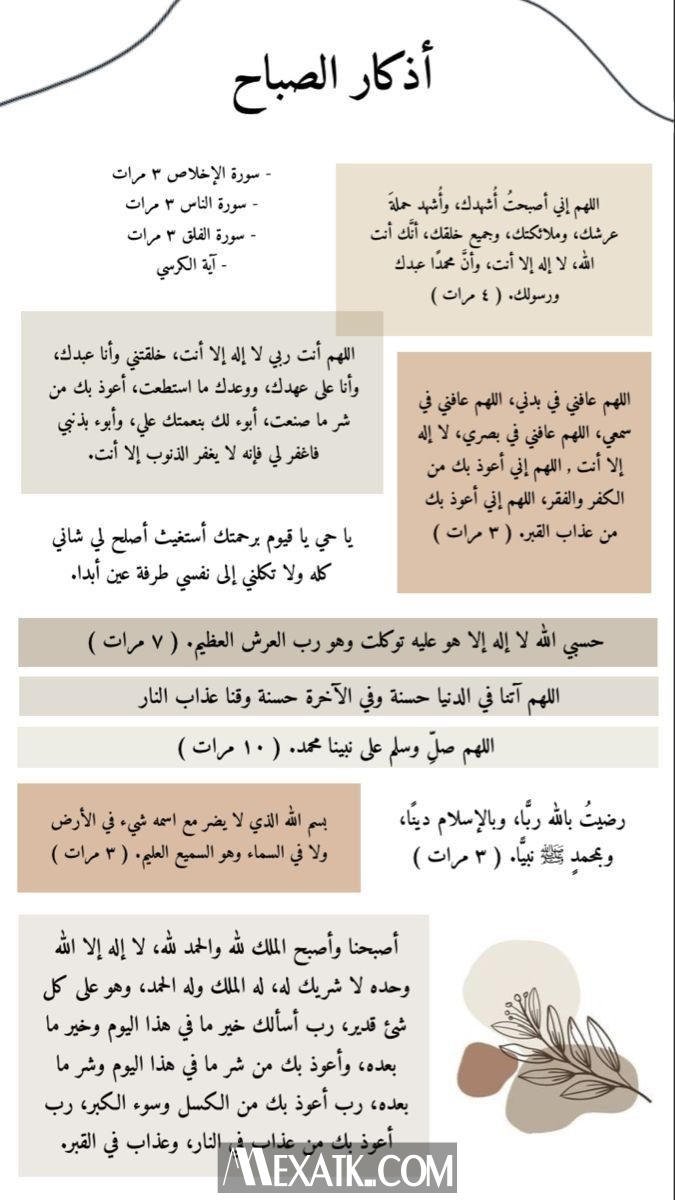 أذكار الصباح
اللهم إني أصبحتُ أُشهدك، وأُشهد حملةَ
عرشك، وملائكتك، وجميع خلقك، أنَّك أنت
الله، لا إله إلا أنت، وأنَّ محمدًا عبدك
ورسولك. ( ٤ مرات )
- سورة الإخلاص ٣ مرات
- سورة الناس ٣ مرات
- سورة الفلق ٣ مرات
- آية الكرسي
اللهم أنت ربي لا إله إلا أنت، خلقتني وأنا عبدك،
وأنا على عهدك، ووعدك ما استطعت، أعوذ بك من
شر ما صنعت، أبوء لك بنعمتك علي، وأبوء بذنبي
فاغفر لي فإنه لا يغفر الذنوب إلا أنت.
اللهم عافني في بدني، اللهم عافني في
سمعي، اللهم عافني في بصري، لا إله
إلا أنت , اللهم إني أعوذ بك من
الكفر والفقر، اللهم إني أعوذ بك
من عذاب القبر. ( ٣ مرات )
يا حي يا قيوم برحمتك أستغيث أصلح لي شاني
كله ولا تكلني إلى نفسي طرفة عين أبدا.
حسبي الله لا إله إلا هو عليه توكلت وهو رب العرش العظيم. ( ٧ مرات )
اللهم آتنا في الدنيا حسنة وفي الآخرة حسنة وقنا عذاب النار
اللهم صلِّ وسلم على نبينا محمد. ( ١٠ مرات )
رضيتُ بالله ربًّا، وبالإسلام دينًا،
وبمحمدٍ ﷺ نبيًّا. ( ٣ مرات )
بسم الله الذي لا يضر مع اسمه شيء في الأرض
ولا في السماء وهو السميع العليم. ( ٣ مرات )
أصبحنا وأصبح الملك لله والحمد لله، لا إله إلا الله
وحده لا شريك له، له الملك وله الحمد، وهو على كل
شئ قدير، رب أسألك خير ما في هذا اليوم وخير ما
بعده، وأعوذ بك من شر ما في هذا اليوم وشر ما
بعده، رب أعوذ بك من الكسل وسوء الكبر، رب
أعوذ بك من عذاب في النار، وعذاب في القبر.
MEXATK.COM